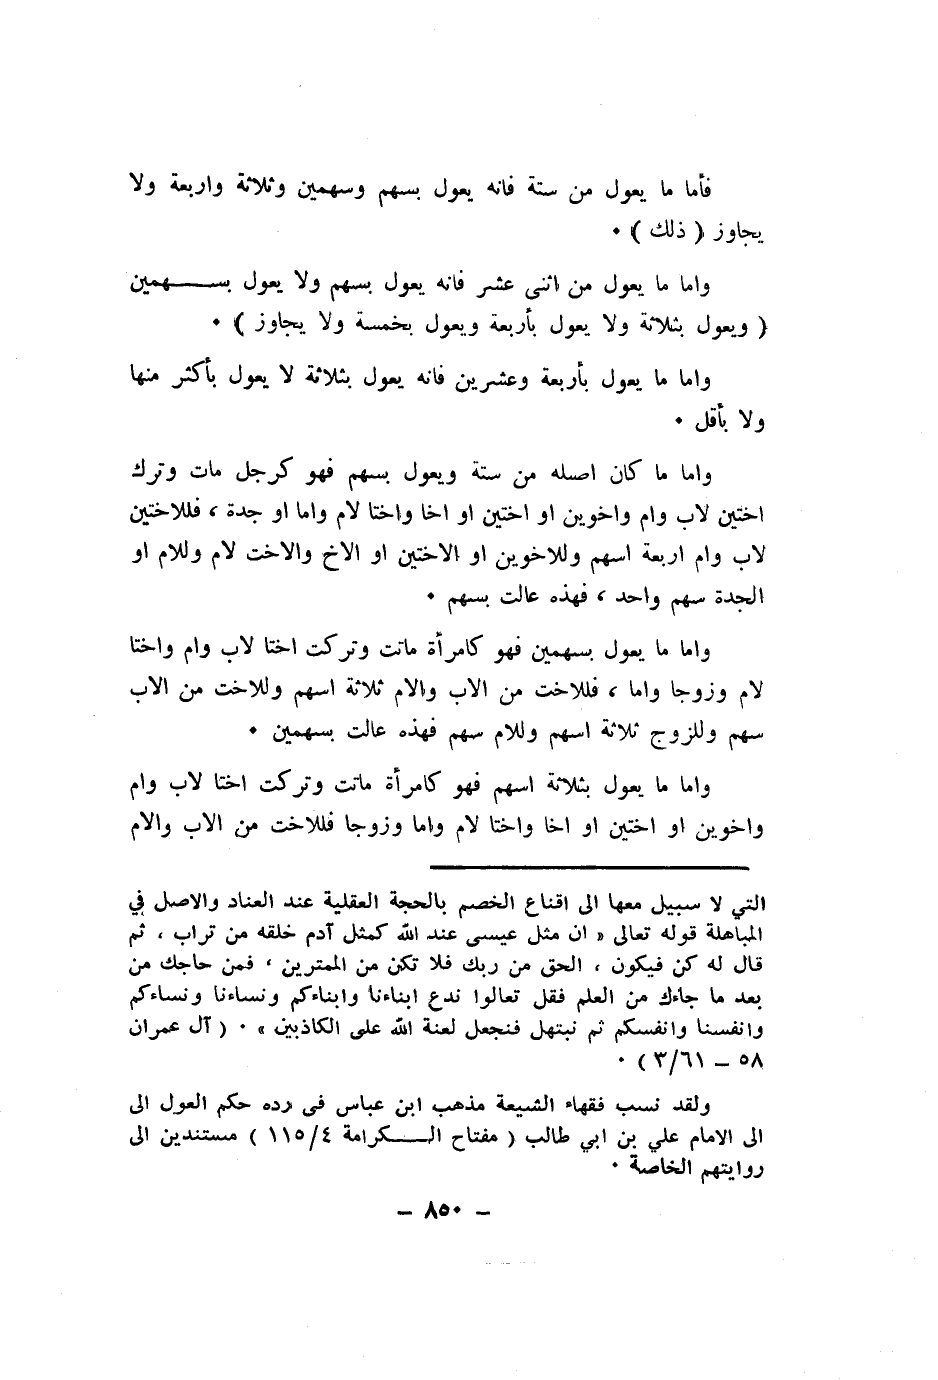 فأما ما يعول من ستة فانه يعول بسهم وسهمين وثلاثة واربعة ولا
يجاوز ( ذلك ) ٠
واما ما يعول من اثنى عشر فانه يعول بسهم ولا يعول بسهمين
( ويعول بثلاثة ولا يعول بأربعة ويعول بخمسة ولا يجاوز ) ٠
واما ما يعول بأربعة وعشرين فانه يعول بثلاثة لا يعول بأكثر منها
ولا بأقل ٠
واما ما كان اصله من ستة ويعول بسهم فهو كرجل مات وترك
اختين لاب وام واخوين او اختين او اخا واختا لام واما او جدة ، فللاختين
لاب وام اربعة اسهم وللاخوين او الاختين او الاخ والاخت لام وللام او
الجدة سهم واحد ، فهذه عالت بسهم ٠
واما ما يعول بسهمين فهو كامرأة ماتت وتركت اختا لاب وام واختا
لام وزوجا واما ، فللاخت من الاب والام ثلاثة اسهم وللاخت من الاب
سهم وللزوج ثلاثة اسهم وللام سهم فهذه عالت بسهمين ٠
واما ما يعول بثلاثة اسهم فهو كامرأة ماتت وتركت اختا لاب وام
واخوين او اختين او اخا واختا لام واما وزوجا فللاخت من الاب والام
التي لا سبيل معها الى اقناع الخصم بالحجة العقلية عند العناد والاصل في
المباهلة قوله تعالى « ان مثل عيسى عند الله كمثل آدم خلقه من تراب ، ثم
قال له كن فيكون ، الحق من ربك فلا تكن من الممترين ، فمن حاجك من
بعد ما جاءك من العلم فقل تعالوا ندع ابناءنا وابناءكم ونساءنا ونساءكم
وانفسنا وانفسكم ثم نبتهل فنجعل لعنة الله على الكاذبين » ٠ ( آل عمران
٥٨ – ٣/٦١ ) ٠
ولقد نسب فقهاء الشيعة مذهب ابن عباس فى رده حكم العول الى
الى الامام علي بن ابي طالب ( مفتاح الكرامة ١١٥/٤ ) مستندين الى
روايتهم الخاصة ٠
– ٨٥٠ –